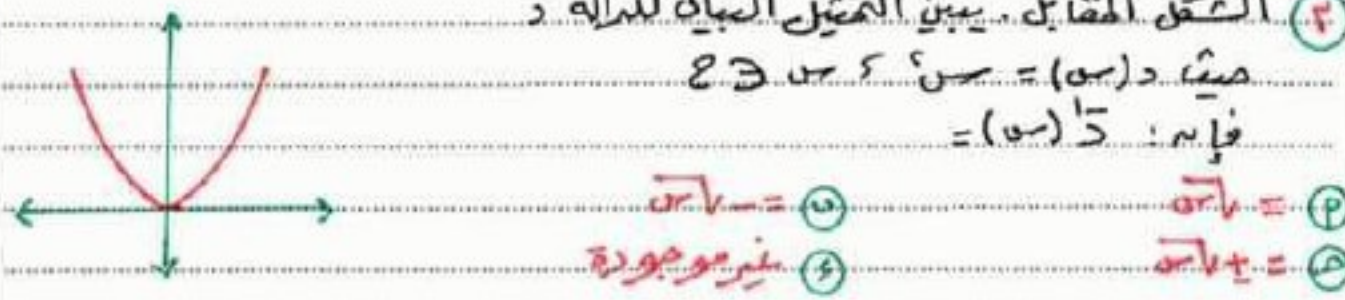 ٣ الشكل المقابل . يبين التمثيل البيانى للدالة د
حيث د(س) = س٢ ، س ∈ ع
فإن : د⁻١(س) =
P = √س ب = -√س
ح = ±√س ٤ غير موجودة